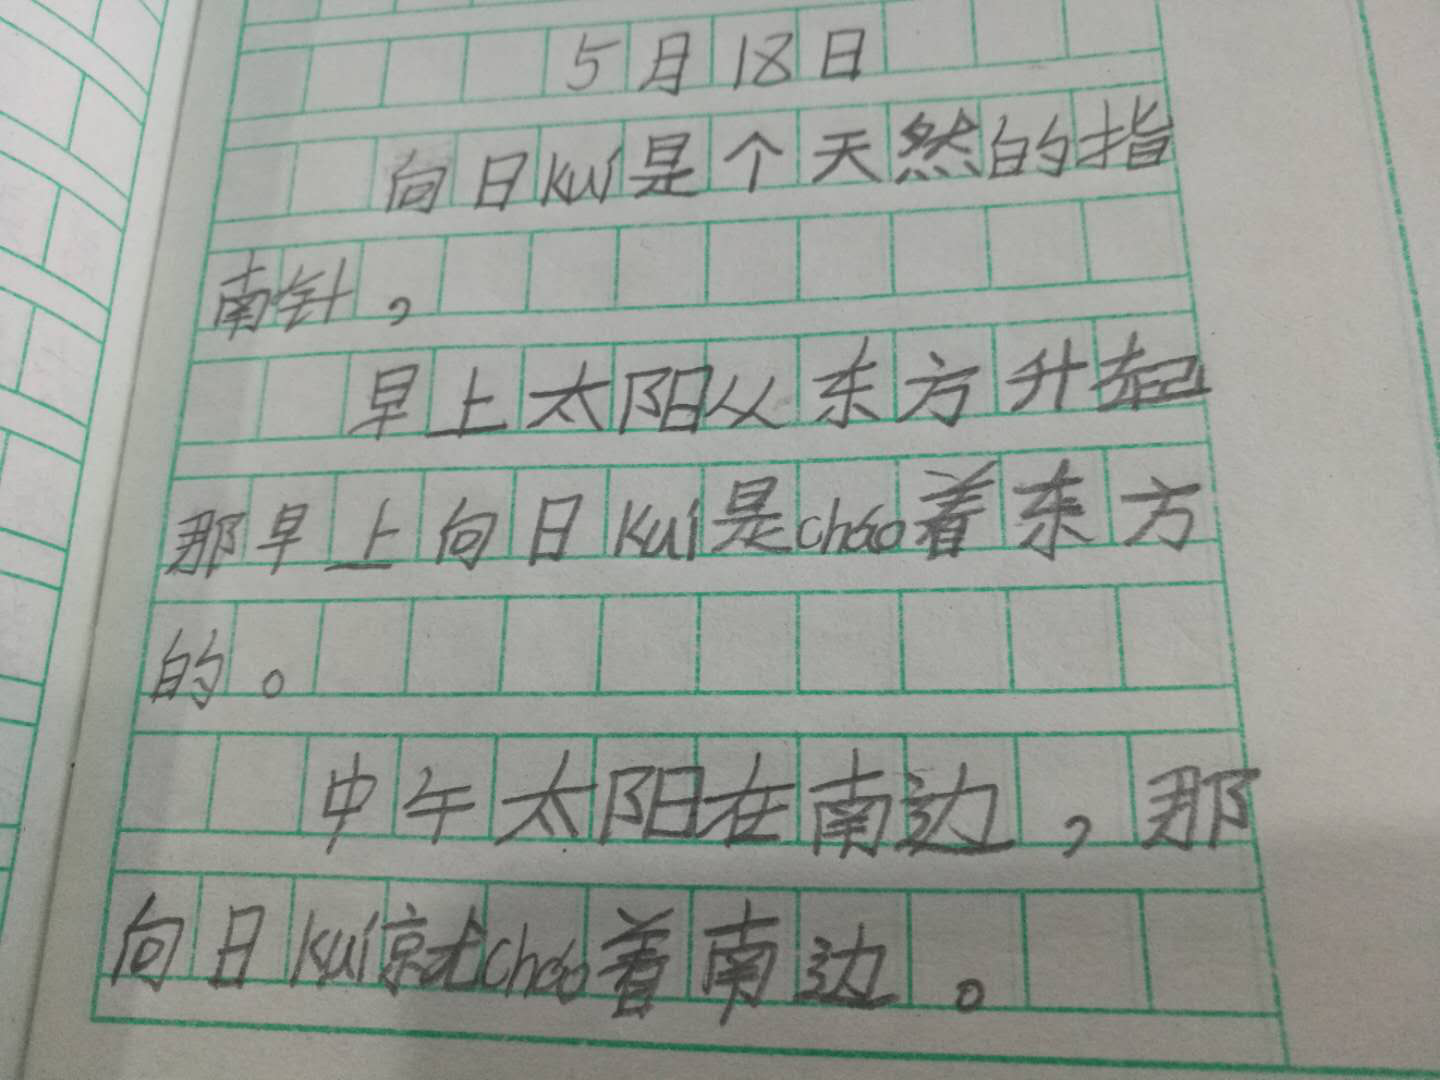 5月18日
向日kuí是个天然的指
南针，
早上太阳从东方升起
那早上向日kuí是cháo着东方
的。
中午太阳在南边，那
向日kuí就cháo着南边。